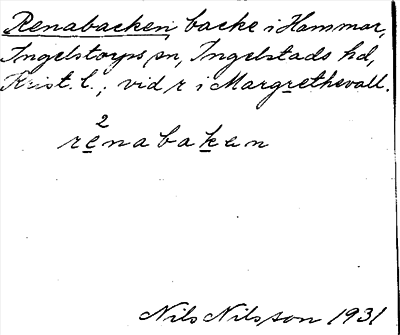 Renabacken, backe i Hammar,
Ingelstorps sn, Ingelstads hd,
Krist. l.; vid r i Margrethevall.
2
renabaken
Nils Nilsson 1931